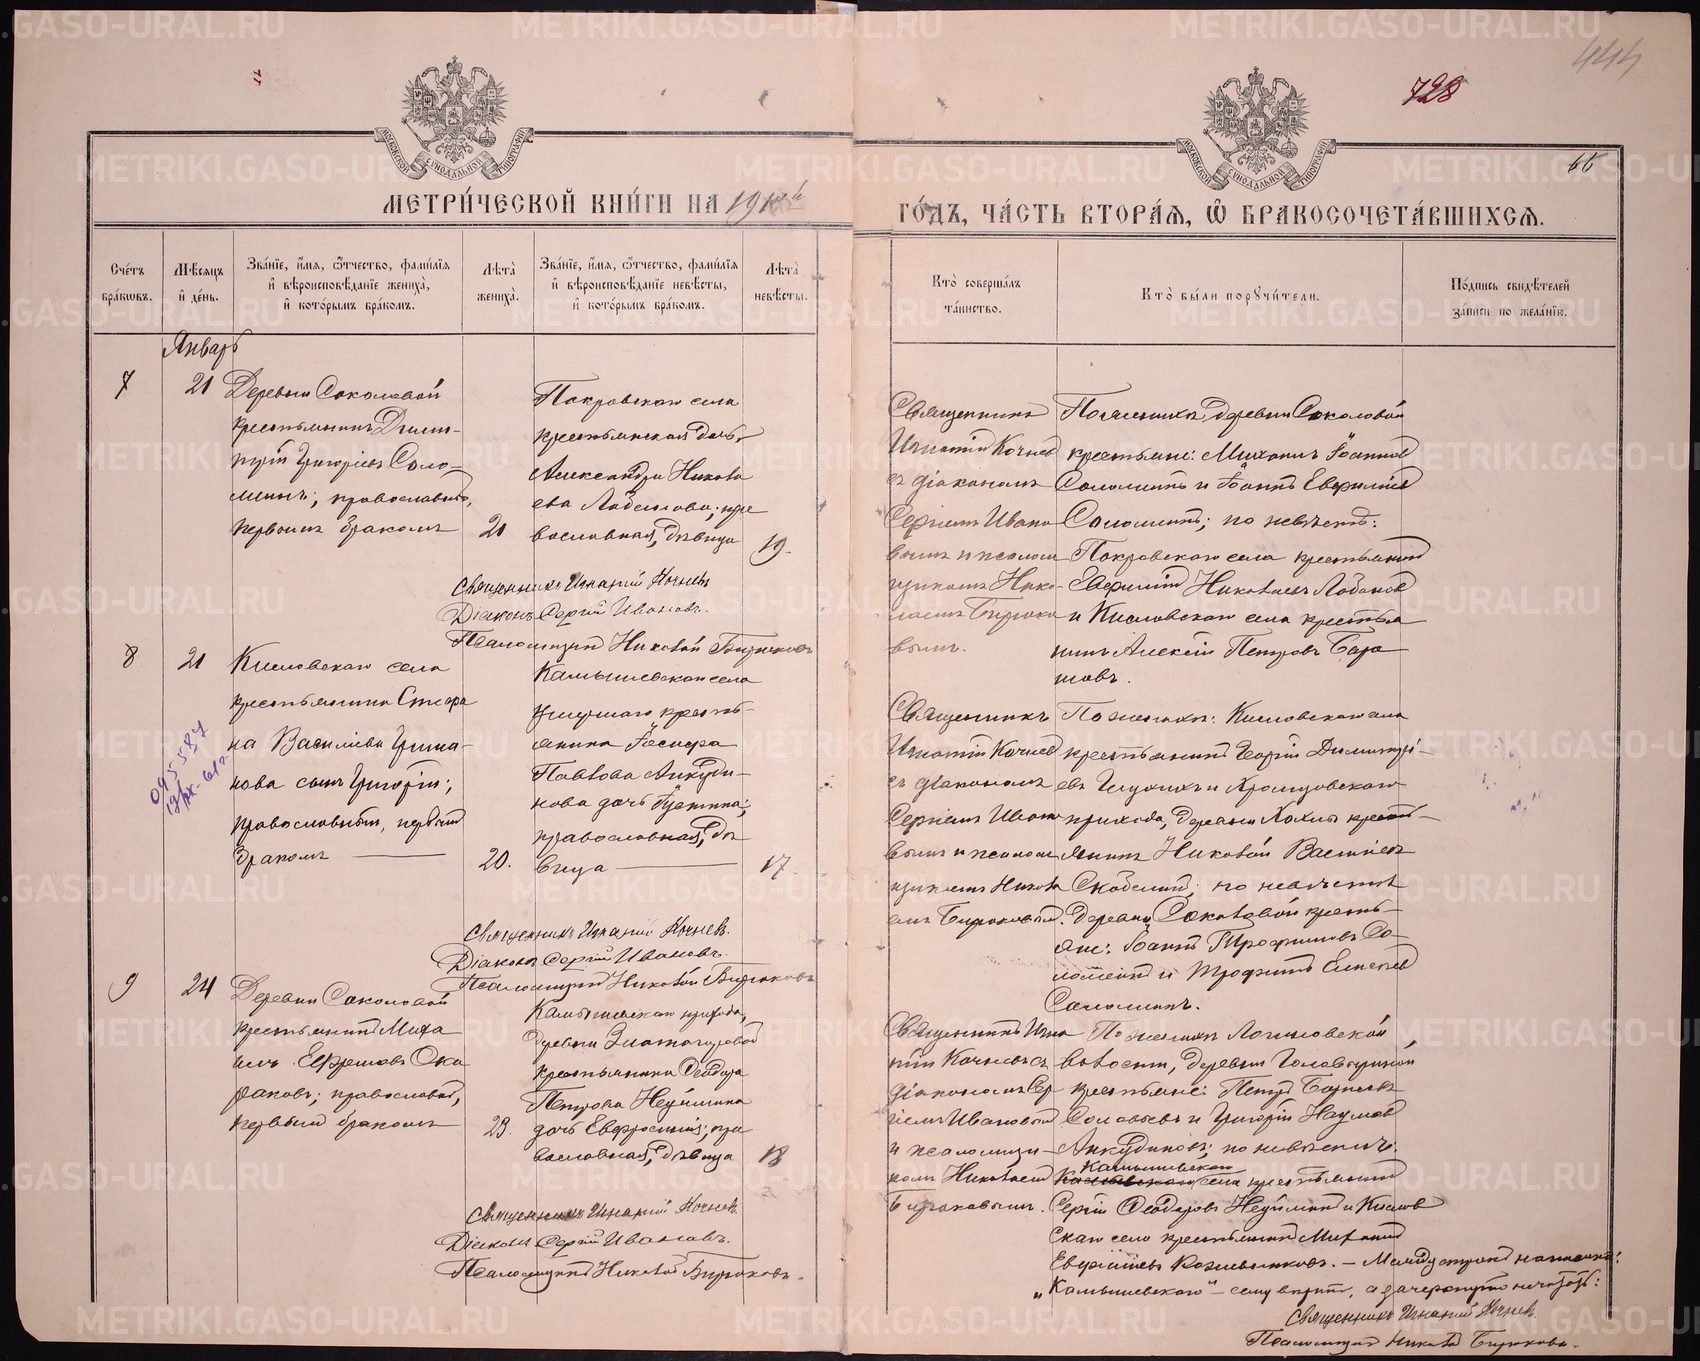 444
728
66
МОСКОВСКОЙ СѴНОДАЛЬНОЙ ТИПОГРАФІИ
МЕТРИ́ЧЕСКОЙ КНИ́ГИ НА 191
ГО́ДЪ, ЧА́СТЬ ВТОРА́Я, Ѿ БРАКОСОЧЕТА́ВШИХСЯ.
Сче́тъ бра́кωвъ.
Мѣ́сяцъ и҆ де́нь.
Зва́нїе, и҆́мя, ѻ҆́тчество, фамї́лїя и҆ вѣроисповѣ́данїе жениха̀, и҆ кото́рымъ бра́комъ.
Лѣ́та̀ жениха̀.
Зва́нїе, и҆́мя, ѻ҆́тчество, фамї́лїя и҆ вѣроисповѣ́данїе невѣ́сты, и҆ кото́рымъ бра́комъ.
Лѣ́та̀ невѣ́сты.
Кто̀ соверша́лъ та́инство.
Кто̀ бы́ли порꙋчи́тели.
По́дпись свидѣ́телей за́писи по жела́нїю.
Январь
7
21
Деревни Соколовой
крестьянинъ Дими-
трій Григоріевъ Соло-
минъ; православный,
первымъ бракомъ
21
Покровскаго села
крестьянская дочь
Александра Никола
ева Лобанова; пра
вославная, дѣвица
19.
Священникъ
Игнатій Кочнев
съ діакономъ
Сергіемъ Ивано
вымъ и псалом
щикомъ Нико-
лаемъ Бирюко
вымъ.
По женихѣ: деревни Соколовой
крестьяне: Михаилъ Іоаннов
Соломинъ и Іоаннъ Евфиміев
Соломинъ; по невѣстѣ:
Покровскаго села крестьянинъ
Евфимій Николаевъ Лобанов
и Кисловскаго села крестья
нинъ Алексій Петровъ Бара
новъ.
Священникъ Игнатій Кочневъ
Діаконъ Сергій Ивановъ.
Псаломщикъ Николай Бирюковъ
8
21
Кисловскаго села
крестьянина Стефа
на Василіева
нова сынъ Григорій;
православный, первымъ
бракомъ
20.
Камышевскаго села
умершаго кресть-
янина
Павлова Анкуди-
нова дочь Іустина;
православная, дѣ
вица
17
Священникъ
Игнатій Кочнев
съ діакономъ
Сергіемъ Ивано
вымъ и псалом
щикомъ Никола
емъ Бирюковым.
По женихѣ: Кисловскаго села
крестьянинъ Георгій Димитрі-
евъ Глухихъ и
прихода, деревни кресть-
янинъ Николай Василіевъ
Скобелинъ; по невѣстѣ
деревни Соколовой кресть-
яне: Іоаннъ Трофимовъ Со-
ломинъ и Трофимъ
Соломинъ.
095587
Священникъ Игнатій Кочневъ.
Діаконъ Сергій Ивановъ.
Псаломщикъ Николай Бирюковъ
9
24
Деревни Соколовой
крестьянинъ Миха
илъ Ефремовъ
православный,
первымъ бракомъ
23.
Камышевскаго прихода,
деревни Златогоровой
крестьянина Ѳеодора
Петрова Неуймина
дочь Евфросинія; пра
вославная, дѣвица
18
Священникъ Игна
тій Кочневъ съ
діакономъ Сер-
гіемъ Ивановым
и псаломщи-
комъ Николаемъ
Бирюковымъ.
По женихѣ Логиновской
волости, деревни Головыриной
крестьяне: Петръ
Соловьевъ и Григорій Наумов
Анкудиновъ; по невѣстѣ:
Камышевскаго
села крестьянинъ
Сергій Ѳеодоровъ Неуйминъ и Кислов
скаго села крестьянинъ
Евфиміевъ Кожевниковъ. — Между строкъ написано:
„Камышевскаго" — сему вѣрить, а зачеркнутое не читать:
Священникъ Игнатій Кочневъ.
Псаломщикъ Николай Бирюковъ.
Священникъ Игнатій Кочневъ
Діаконъ Сергій Ивановъ.
Псаломщикъ Николай Бирюковъ.
METRIKI.GASO-URAL.RU